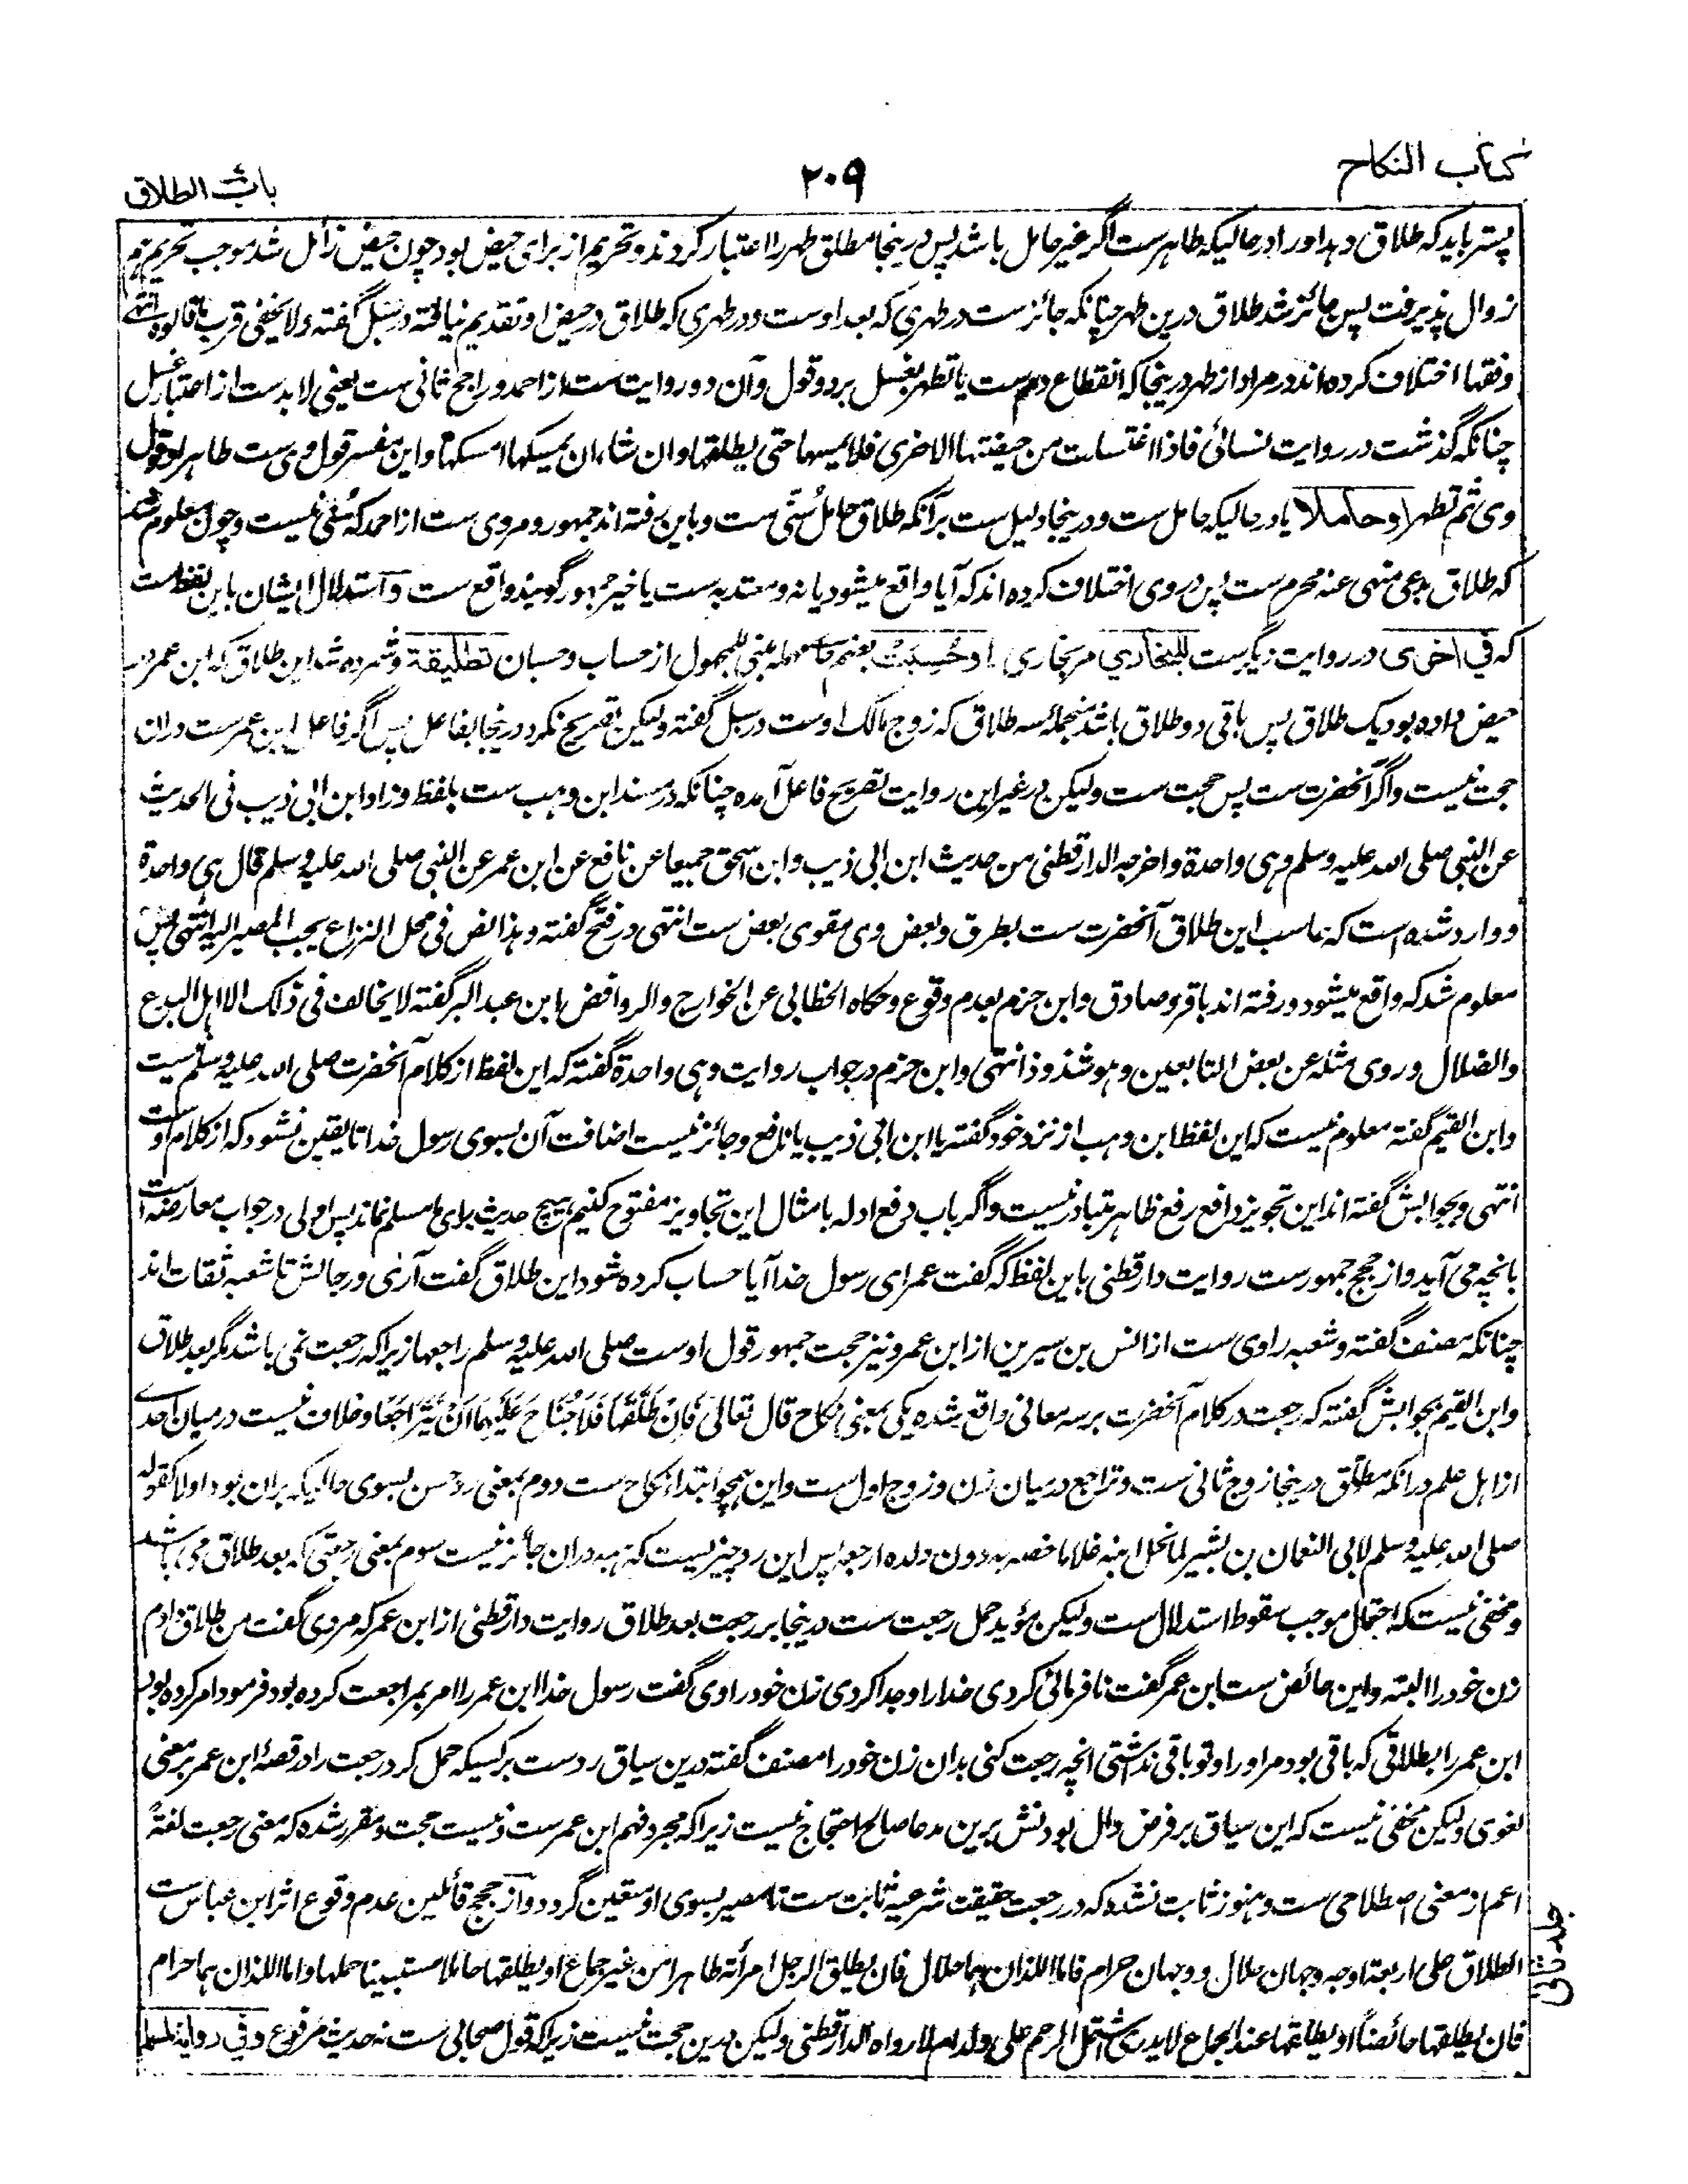 کتاب النکاح
۲۰۹
باب الطلاق
پستر باید که طلاق دهد او را در حالیکه طاهر ست اگر غیر حامل باشد پس درینجا مطلق طهر را اعتبار کردند و تحریم از برای حیض بود چون حیض زائل شد موجب تحریم هم
زوال پذیرفت پس جائز شد طلاق درین طهر چنانکه جائز ست در طهری که بعد اوست و در طهری که طلاق در حیض او تقدیم نیافته در سبل گفته ولا یخفی قرب ما قالوه انتهی
و فقها اختلاف کرده‌اند در مراد از طهر درینجا که انقطاع دم ست یا تطهر بغسل بر دو قول و آن دو روایت ست از احمد و راجح ثانی ست یعنی لابد ست از اعتبار غسل
چنانکه گذشت در روایت نسائی فاذا اغتسلت من حیضتها الاخری فلا یمسها حتی یطلقها وان شاء ان یمسکها امسکها و این مفسر قول وی ست طاهر او قول
وی ثم تطهر او حاملا یا در حالیکه حامل ست و درینجا دلیل ست بر آنکه طلاق حامل سُنّی ست و باین رفته اند جمهور و مروی ست از احمد که سُنی نیست و چون معلوم شد
که طلاق بدعی منهی عنه محرم ست پس در وی اختلاف کرده اند که آیا واقع میشود یا نه و معتد به ست یا خیر جمهور گویند واقع ست و استدلال ایشان باین لفظ ست
که فی اخری در روایت دیگر ست للبخاری مر بخاری را وحُسِبَتْ بضم حاء مهمله مبنی للمجهول از حساب و حسبان تطلیقة و شمرده شد این طلاق که ابن عمر در
حیض داده بود یک طلاق پس باقی دو طلاق باشد منجمله سه طلاق که زوج مالک اوست در سبل گفته ولیکن تصریح نکرد درینجا بفاعل پس اگر فاعل ابن عمر ست دران
حجت نیست و اگر آنحضرت ست پس حجت ست ولیکن در غیر این روایت تصریح فاعل آمده چنانکه در مسند ابن وهب ست بلفظ وزاد ابن ابی ذیب فی الحدیث
عن النبی صلی الله علیه وسلم وهی واحدة واخرجه الدارقطنی من حدیث ابن ابی ذیب وابن اسحق جمیعا عن نافع عن ابن عمر عن النبی صلی الله علیه وسلم قال هی واحدة
و وارد شده است که حاسب این طلاق آنحضرت ست بطرق و بعض وی مقوی بعض ست انتهی در فتح گفته وهذا نص فی محل النزاع یجب المصیر الیه انتهی پس
معلوم شد که واقع میشود و رفته اند باقر و صادق و ابن حزم بعدم وقوع وحکاه الخطابی عن الخوارج والروافض ابن عبد البر گفته لا یخالف فی ذلک الا اهل البدع
والضلال وروی مثله عن بعض التابعین وهو شذوذ انتهی و ابن حزم در جواب روایت وهی واحدة گفته که این لفظ از کلام آنحضرت صلی الله علیه وسلم نیست
و ابن القیم گفته معلوم نیست که این لفظ ابن وهب از نزد خود گفته یا ابن ابی ذیب یا نافع و جائز نیست اضافت آن بسوی رسول خدا تا یقین نشود که از کلام اوست
انتهی و بجوابش گفته اند این تجویز دافع رفع ظاهر متبادر نیست و اگر باب دفع ادله بامثال این تجاویز مفتوح کنیم هیچ حدیث برای ما مسلم نماند پس اولی در جواب معارضه است
بانچه می آید و از حجج جمهور ست روایت دارقطنی باین لفظ که گفت عمر ای رسول خدا آیا حساب کرده شود این طلاق گفت آری و رجالش تا شعبه ثقات اند
چنانکه مصنف گفته و شعبه راوی ست از انس بن سیرین از ابن عمر و نیز حجت جمهور قول اوست صلی الله علیه وسلم راجعها زیراکه رجعت نمی باشد مگر بعد طلاق
و ابن القیم بجوابش گفته که رجعت در کلام آنحضرت بر سه معانی واقع شده یکی بمعنی نکاح قال تعالی فَاِنْ طَلَّقَهَا فَلَا جُنَاحَ عَلَیْهِمَا اَنْ یَّتَرَاجَعَا و خلاف نیست در میان احدے
از اهل علم در آنکه مطلّق درینجا زوج ثانی ست و تراجع در میان زن و زوج اول ست و این همچو ابتداء نکاح ست دوم بمعنی رد حسن بسوی حالیکه بران بود اولا کقوله
صلی الله علیه وسلم لابی النعمان بن بشیر لما نحل ابنه غلاما خصه به دون ولده ارجعه پس این رد چیزیست که هبه دران جائز نیست سوم بمعنی رجعتی که بعد طلاق می باشد
و مخفی نیست که احتمال موجب سقوط استدلال ست ولیکن مؤید حمل رجعت ست درینجا بر رجعت بعد طلاق روایت دارقطنی از ابن عمر که مردی گفت من طلاق دادم
زن خود را البته و این حائض ست ابن عمر گفت نافرمانی کردی خدا را و جدا کردی زن خود راوی گفت رسول خدا ابن عمر را امر بمراجعت کرده بود فرمود امر کرده بود
ابن عمر را بطلاقی که باقی بود مر او را و تو باقی نداشتی انچه رجعت کنی بدان زن خود را مصنف گفته درین سیاق رد ست بر کسیکه حمل کرد رجعت را در قصهٔ ابن عمر بر معنی
لغوی ولیکن مخفی نیست که این سیاق بر فرض دال بودنش برین مدعا صالح احتجاج نیست زیراکه مجرد فهم ابن عمر ست و نیست حجت و مقرر شده که معنی رجعت لغةً
اعم از معنی اصطلاحی ست و هنوز ثابت نشده که در رجعت حقیقت شرعیه ثابت ست تا مصیر بسوی او متعین گردد و از حجج قائلین عدم وقوع اثر ابن عباس ست
الطلاق علی اربعة اوجه وجهان حلال ووجهان حرام فاما اللذان هما حلال فان یطلق الرجل امرأته طاهرا من غیر جماع او یطلقها حاملا مستبینا حملها واما اللذان هما حرام
فان یطلقها حائضاً او یطلقها عند الجماع لا یدری اشتمل الرحم علی ولد ام لا رواه الدارقطنی ولیکن درین حجت نیست زیراکه قول صحابی ست نه حدیث مرفوع وفی روایة لمسلم